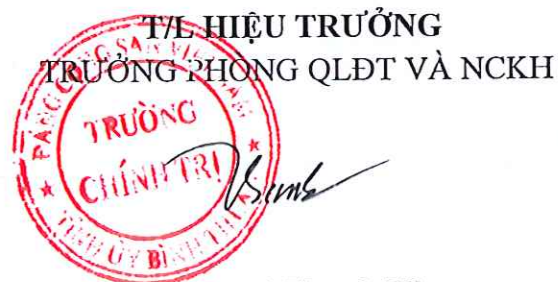 T/L HIỆU TRƯỞNG
TRƯỞNG PHÒNG QLĐT VÀ NCKH
ĐẢNG CỘNG SẢN VIỆT NAM
TRƯỜNG
CHÍNH TRỊ
TỈNH ỦY BÌNH